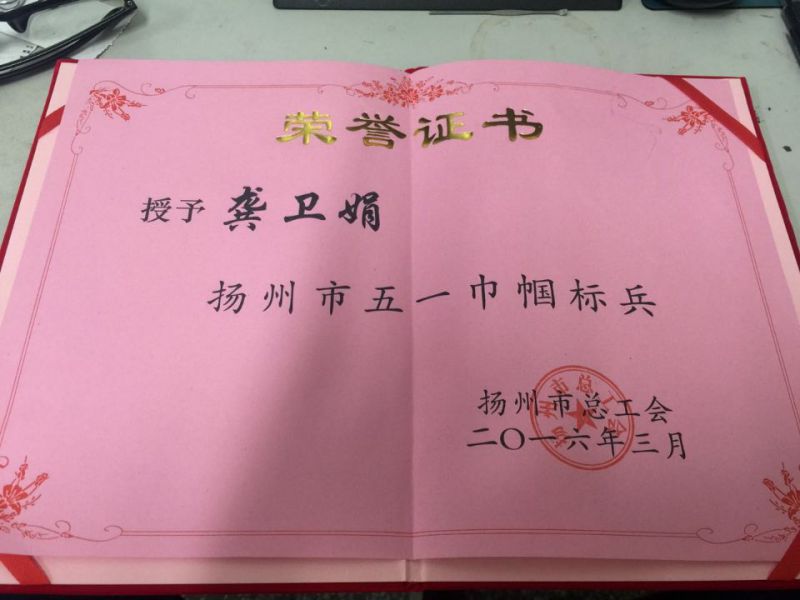 荣誉证书
授予 龚卫娟
扬州市五一巾帼标兵
扬州市总工会
二〇一六年三月
扬州市总工会